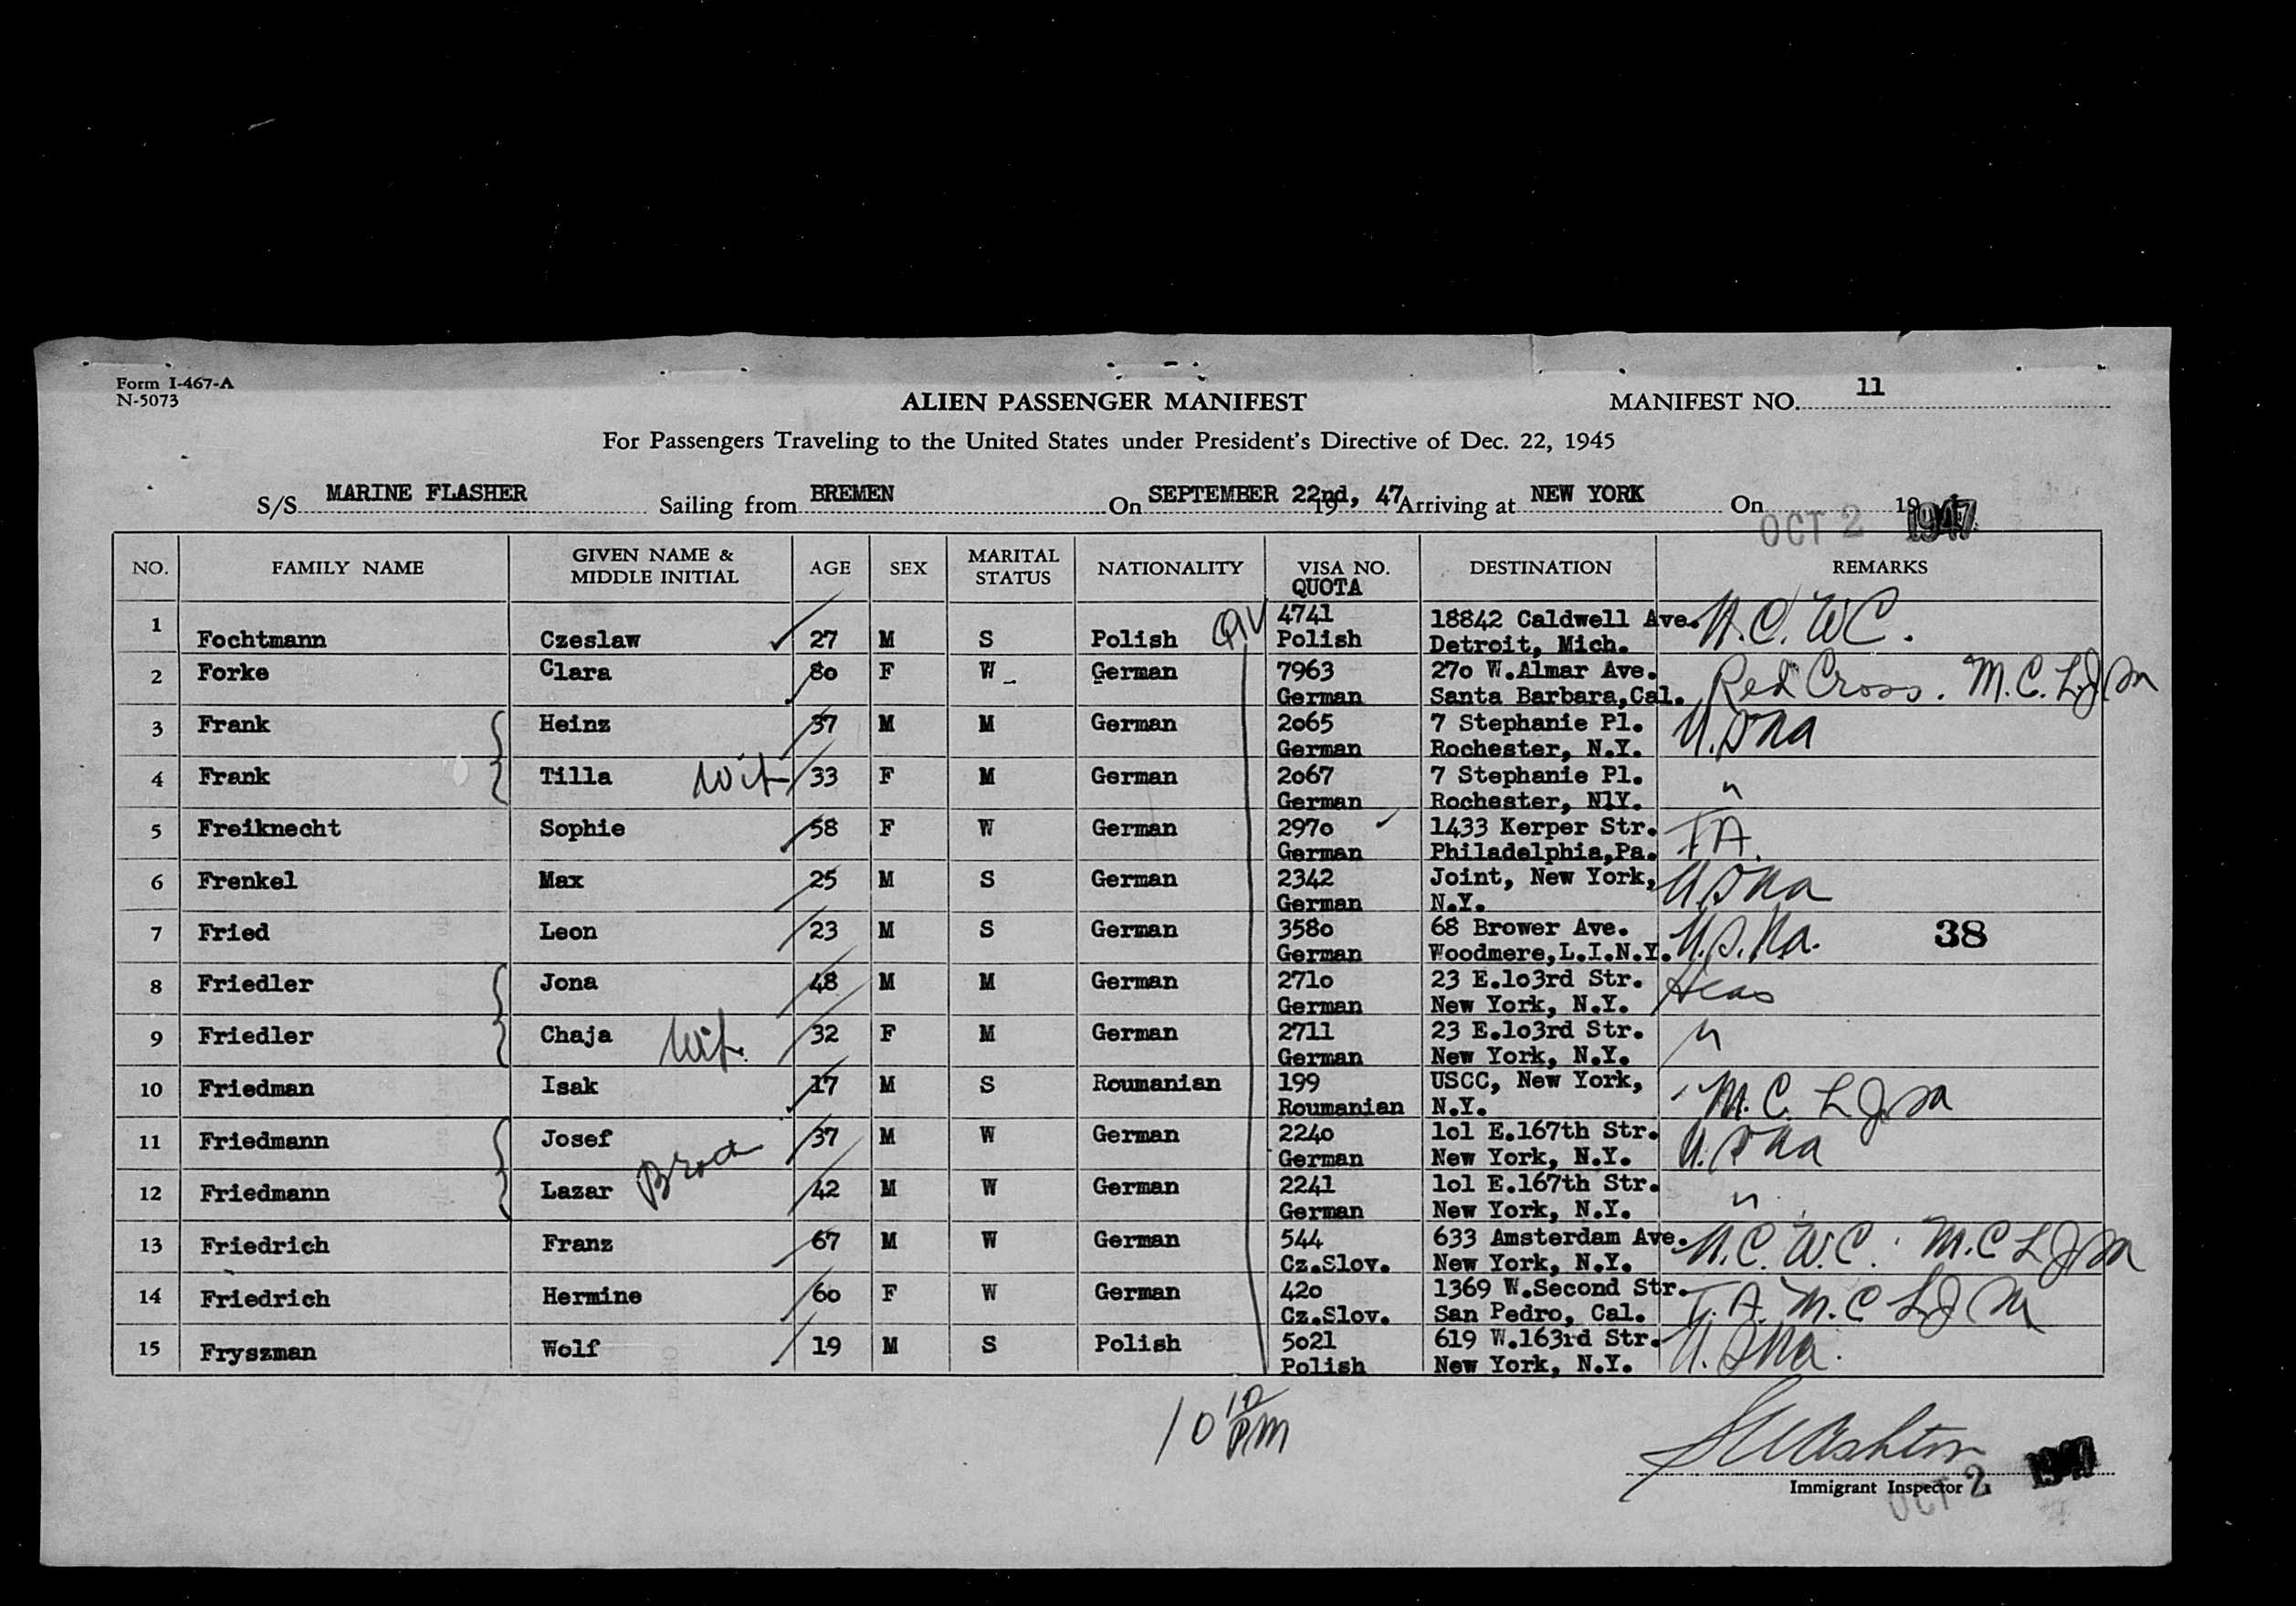 Form I-467-A
N-5073
ALIEN PASSENGER MANIFEST
MANIFEST NO. 11
For Passengers Traveling to the United States under President's Directive of Dec. 22, 1945
S/S MARINE FLASHER Sailing from BREMEN On SEPTEMBER 22nd, 47 19 Arriving at NEW YORK On OCT 2 1947 19
NO. FAMILY NAME GIVEN NAME & MIDDLE INITIAL AGE SEX MARITAL STATUS NATIONALITY VISA NO. QUOTA DESTINATION REMARKS
1 Fochtmann Czeslaw 27 M S Polish QIV 4741 Polish 18842 Caldwell Ave. Detroit, Mich. N.C.W.C.
2 Forke Clara 80 F W German 7963 German 27o W.Almar Ave. Santa Barbara,Cal. Red Cross. M.C. L.J.M
3 Frank Heinz 37 M M German 2o65 German 7 Stephanie Pl. Rochester, N.Y. U.SNA
4 Frank Tilla Wif 33 F M German 2o67 German 7 Stephanie Pl. Rochester, NlY. "
5 Freiknecht Sophie 58 F W German 297o German 1433 Kerper Str. Philadelphia,Pa. T A.
6 Frenkel Max 25 M S German 2342 German Joint, New York, N.Y. USNA
7 Fried Leon 23 M S German 358o German 68 Brower Ave. Woodmere,L.I.N.Y. U.S.Na. 38
8 Friedler Jona 48 M M German 271o German 23 E.lo3rd Str. New York, N.Y. Hias
9 Friedler Chaja Wif. 32 F M German 2711 German 23 E.lo3rd Str. New York, N.Y. "
10 Friedman Isak 17 M S Roumanian 199 Roumanian USCC, New York, N.Y. M.C. L J.M
11 Friedmann Josef 37 M W German 224o German lol E.167th Str. New York, N.Y. U.SNA
12 Friedmann Lazar 42 M W German 2241 German lol E.167th Str. New York, N.Y. "
13 Friedrich Franz 67 M W German 544 Cz.Slov. 633 Amsterdam Ave. New York, N.Y. N.C.W.C. M.C L J M
14 Friedrich Hermine 6o F W German 42o Cz.Slov. 1369 W.Second Str. San Pedro, Cal. T.A. M.C L J M
15 Fryszman Wolf 19 M S Polish 5o21 Polish 619 W.163rd Str. New York, N.Y. U.SNa.
10 10 PM
Immigrant Inspector
OCT 2 1947